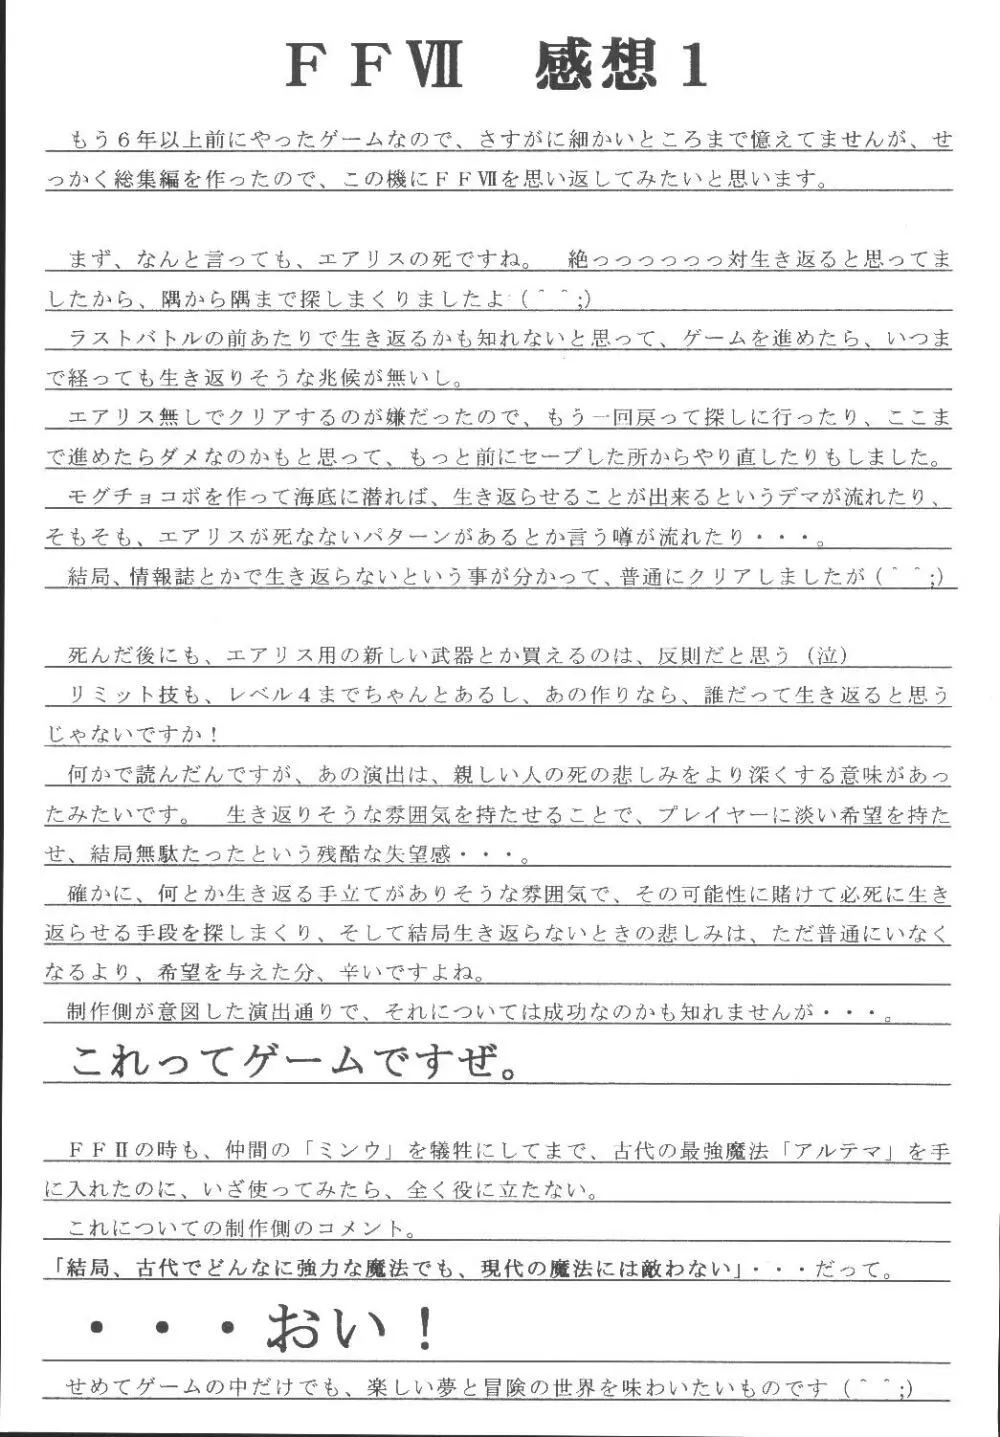 ＦＦⅦ　感想１
もう６年以上前にやったゲームなので、さすがに細かいところまで憶えてませんが、せ
っかく総集編を作ったので、この機にＦＦⅦを思い返してみたいと思います。
まず、なんと言っても、エアリスの死ですね。　絶っっっっっっ対生き返ると思ってま
したから、隅から隅まで探しまくりましたよ（＾＾；）
ラストバトルの前あたりで生き返るかも知れないと思って、ゲームを進めたら、いつま
で経っても生き返りそうな兆候が無いし。
エアリス無しでクリアするのが嫌だったので、もう一回戻って探しに行ったり、ここま
で進めたらダメなのかもと思って、もっと前にセーブした所からやり直したりもしました。
モグチョコボを作って海底に潜れば、生き返らせることが出来るというデマが流れたり、
そもそも、エアリスが死なないパターンがあるとか言う噂が流れたり・・・。
結局、情報誌とかで生き返らないという事が分かって、普通にクリアしましたが（＾＾；）
死んだ後にも、エアリス用の新しい武器とか買えるのは、反則だと思う（泣）
リミット技も、レベル４までちゃんとあるし、あの作りなら、誰だって生き返ると思う
じゃないですか！
何かで読んだんですが、あの演出は、親しい人の死の悲しみをより深くする意味があっ
たみたいです。　生き返りそうな雰囲気を持たせることで、プレイヤーに淡い希望を持た
せ、結局無駄たったという残酷な失望感・・・。
確かに、何とか生き返る手立てがありそうな雰囲気で、その可能性に賭けて必死に生き
返らせる手段を探しまくり、そして結局生き返らないときの悲しみは、ただ普通にいなく
なるより、希望を与えた分、辛いですよね。
制作側が意図した演出通りで、それについては成功なのかも知れませんが・・・。
これってゲームですぜ。
ＦＦⅡの時も、仲間の「ミンウ」を犠牲にしてまで、古代の最強魔法「アルテマ」を手
に入れたのに、いざ使ってみたら、全く役に立たない。
これについての制作側のコメント。
「結局、古代でどんなに強力な魔法でも、現代の魔法には敵わない」・・・だって。
・・・おい！
せめてゲームの中だけでも、楽しい夢と冒険の世界を味わいたいものです（＾＾；）